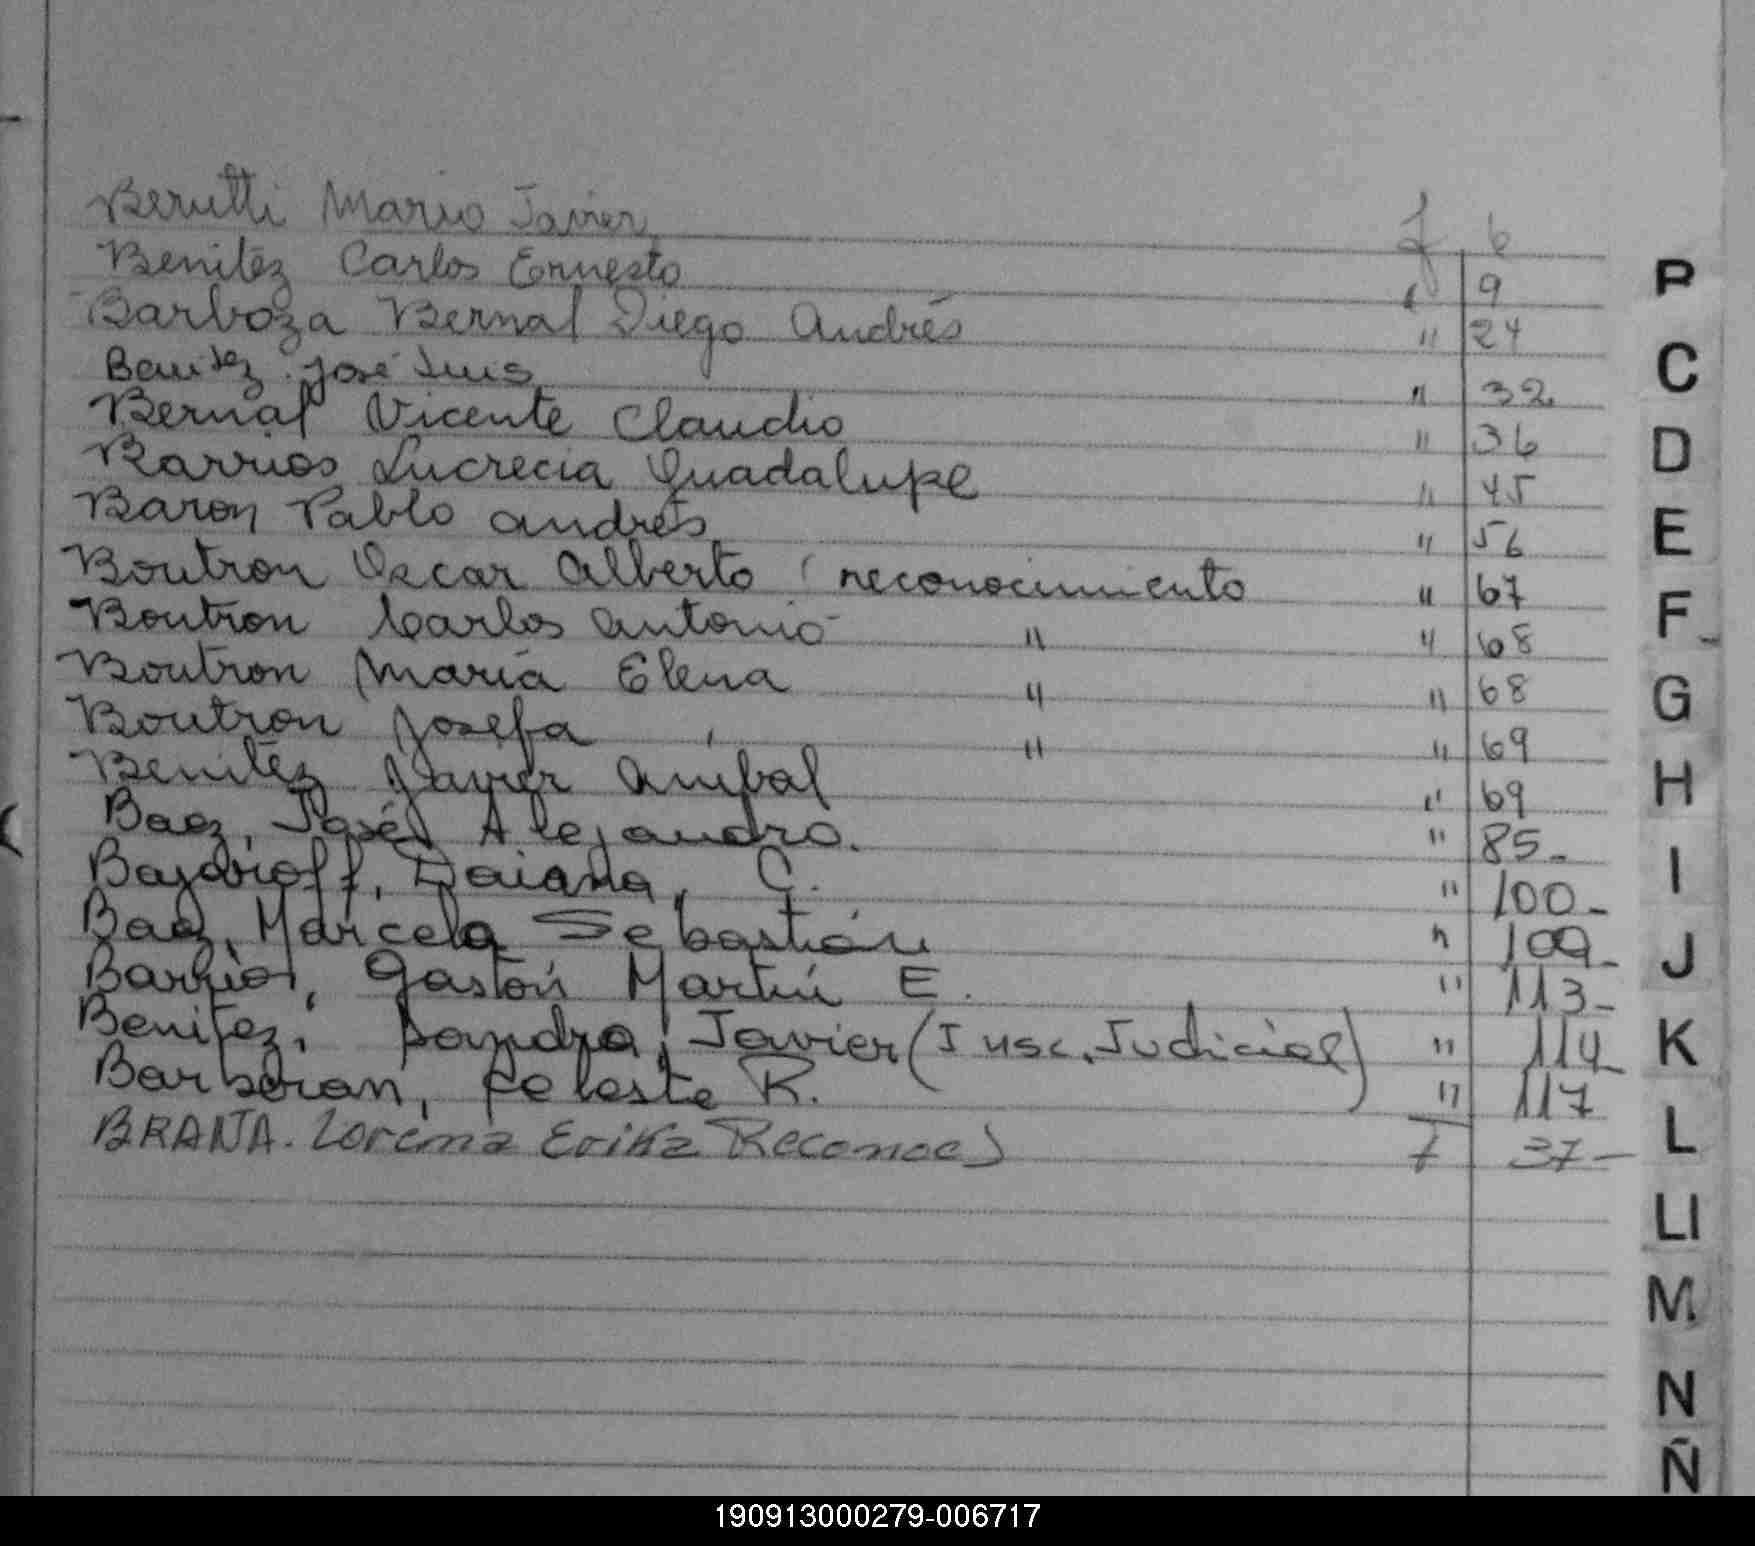 Berutti Mario Javier f 6
Benitez Carlos Ernesto " 9
Barboza Bernal Diego Andrés " 24
Benitez José Luis " 32
Bernal Vicente Claudio " 36
Barrios Lucrecia Guadalupe " 45
Baron Pablo Andrés " 56
Boutron Oscar Alberto ( reconocimiento " 67
Boutron Carlos Antonio " " 68
Boutron María Elena " " 68
Boutron Josefa " " 69
Benitez Javier Anibal " 69
Baez, José Alejandro. " 85-
Daiana, C. " 100-
Baez, Marcelo Sebastián " 109-
Barrios, Gastón Martín E. " 113-
Benitez, Sandro Javier (Insc. Judicial) " 114
Celeste R. " 117
BRAÑA. Lorena Erika Reconoc) f 37-
B
C
D
E
F
G
H
I
J
K
L
Ll
M
N
Ñ
190913000279-006717